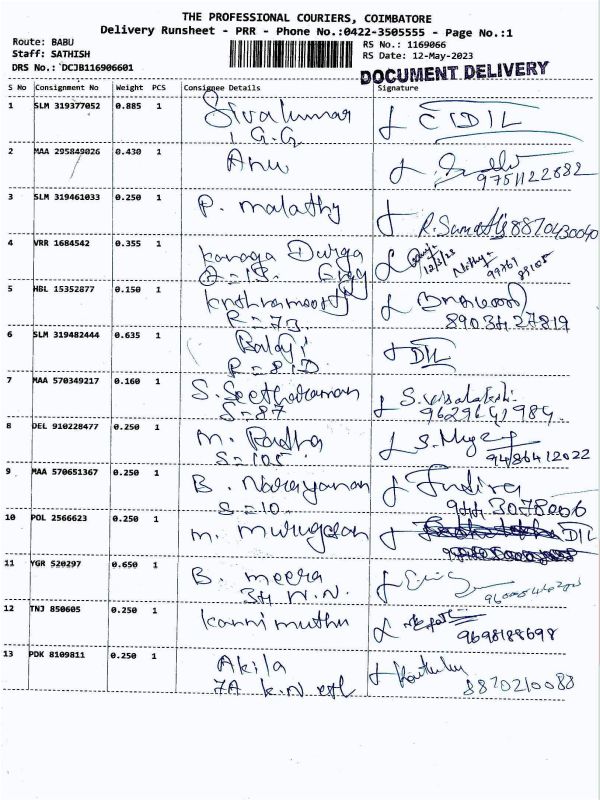 THE PROFESSIONAL COURIERS, COIMBATORE
Delivery Runsheet - PRR - Phone No.:0422-3505555 - Page No.:1
Route: BABU
Staff: SATHISH
DRS No.: DCJB116906601
RS No.: 1169066
RS Date: 12-May-2023
DOCUMENT DELIVERY
S No Consignment No Weight PCS Consignee Details Signature
1 SLM 319377052 0.885 1 Sivakumar DIL
1 G.G
2 MAA 295849026 0.430 1 Anu
9751122682
3 SLM 319461033 0.250 1 P. malathy R. Sumathi 8870430040
4 VRR 1684542 0.355 1 Kanaga Durga
12/5/23 Nithya
5 HBL 15352877 0.150 1
R=73 8903427819
6 SLM 319482444 0.635 1 Balaji DIL
R=81D
7 MAA 570349217 0.160 1 S. Seetharaman S. Visalakshi
S=87 9629641984
8 DEL 910228477 0.250 1 m. Radha
S=105 9486412022
9 MAA 570651367 0.250 1 B. Narayanan Indira
S=10 9443078006
10 POL 2566623 0.250 1 m. murugesan DIL
11 YGR 520297 0.650 1 B. meera
34 N.N.
12 TNJ 850605 0.250 1 Kannimuthu
9698188698
13 PDK 8109811 0.250 1 Akila
7A K.N 8870210088